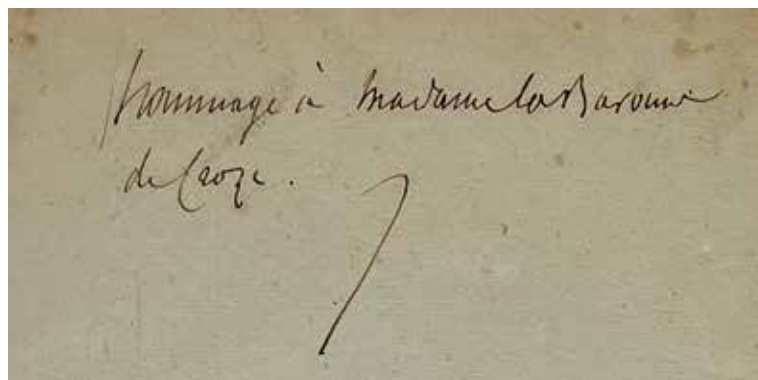 hommage à Madame la Baronne
de Croze.